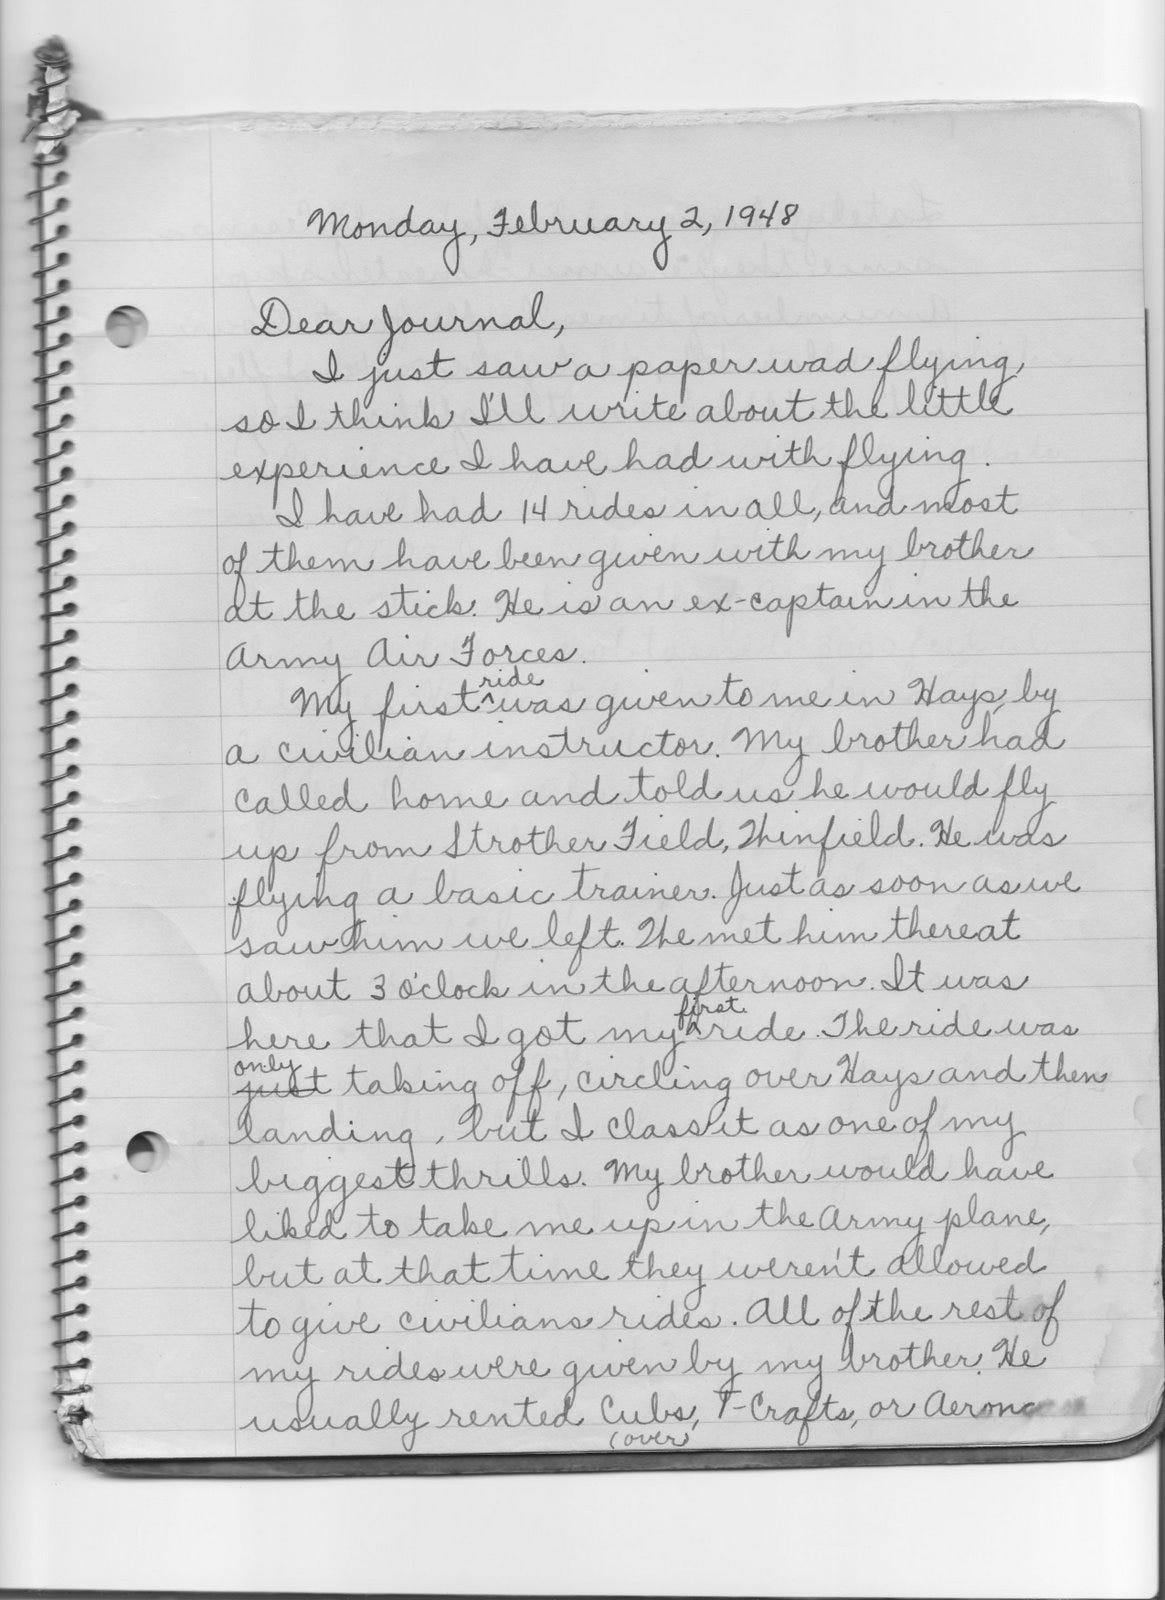 Monday, February 2, 1948
Dear Journal,
I just saw a paper wad flying,
so I think I'll write about the little
experience I have had with flying.
I have had 14 rides in all, and most
of them have been given with my brother
at the stick. He is an ex-captain in the
Army Air Forces.
My first ^ride was given to me in Hays, by
a civilian instructor. My brother had
called home and told us he would fly
up from Strother Field, Winfield. He was
flying a basic trainer. Just as soon as we
saw him we left. We met him there at
about 3 o'clock in the afternoon. It was
here that I got my ^first ride. The ride was
only just taking off, circling over Hays and then
landing, but I class it as one of my
biggest thrills. My brother would have
liked to take me up in the Army plane,
but at that time they weren't allowed
to give civilians rides. All of the rest of
my rides were given by my brother. He
usually rented Cubs, T-Crafts, or
(over)